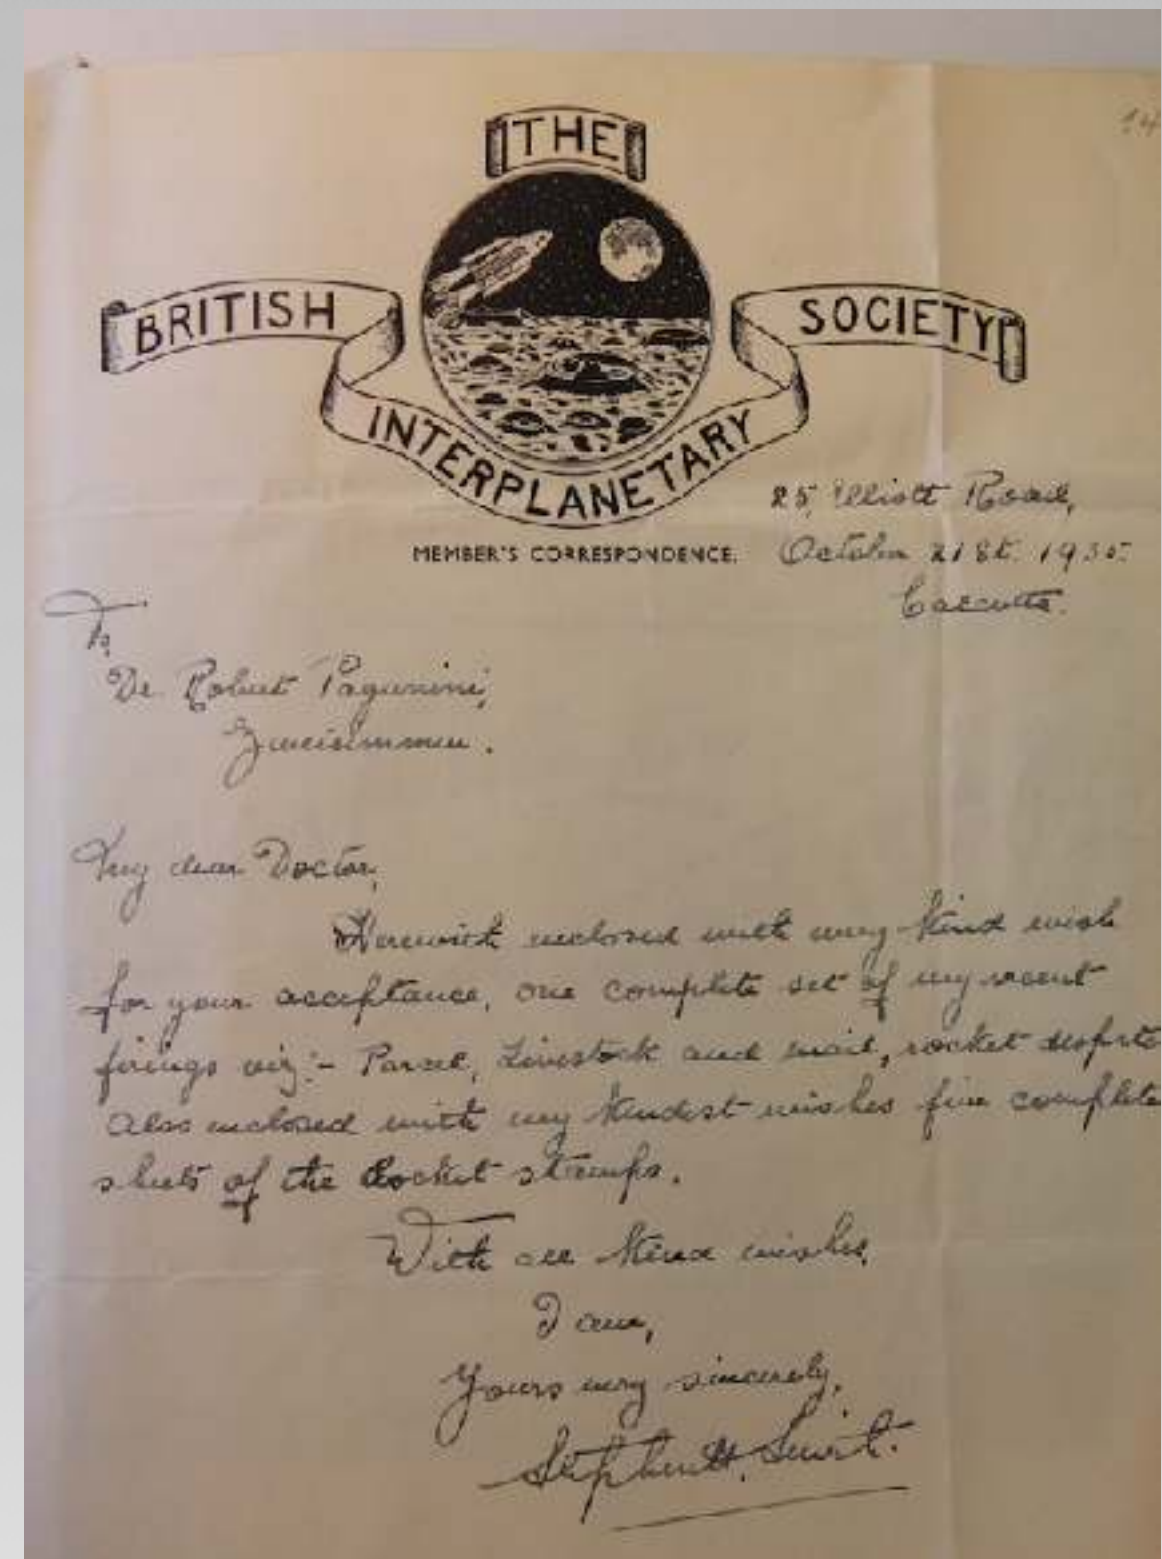 14
THE
BRITISH
INTERPLANETARY
SOCIETY
MEMBER'S CORRESPONDENCE.
25, Elliott Road,
October 21st. 1935.
Calcutta.
To,
Dr. Robert Paganini,
My dear Doctor,
Herewith enclosed with very kind wish
for your acceptance, one complete set of my recent
firings viz:- Parcel, Livestock and mail, rocket
Also enclosed with my kindest wishes five complete
sheets of the Rocket stamps.
With all kind wishes,
I am,
Yours very sincerely,
Stephen H. Smith.